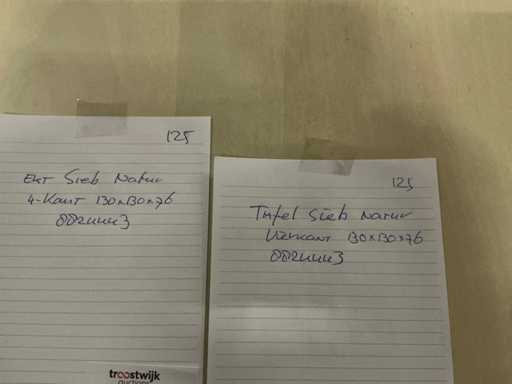 125
EKT Sieb Natur
4-Kant 130x130x76
125
Tafel Sieb Natur
Vierkant 130x130x76
troostwijk
auctions